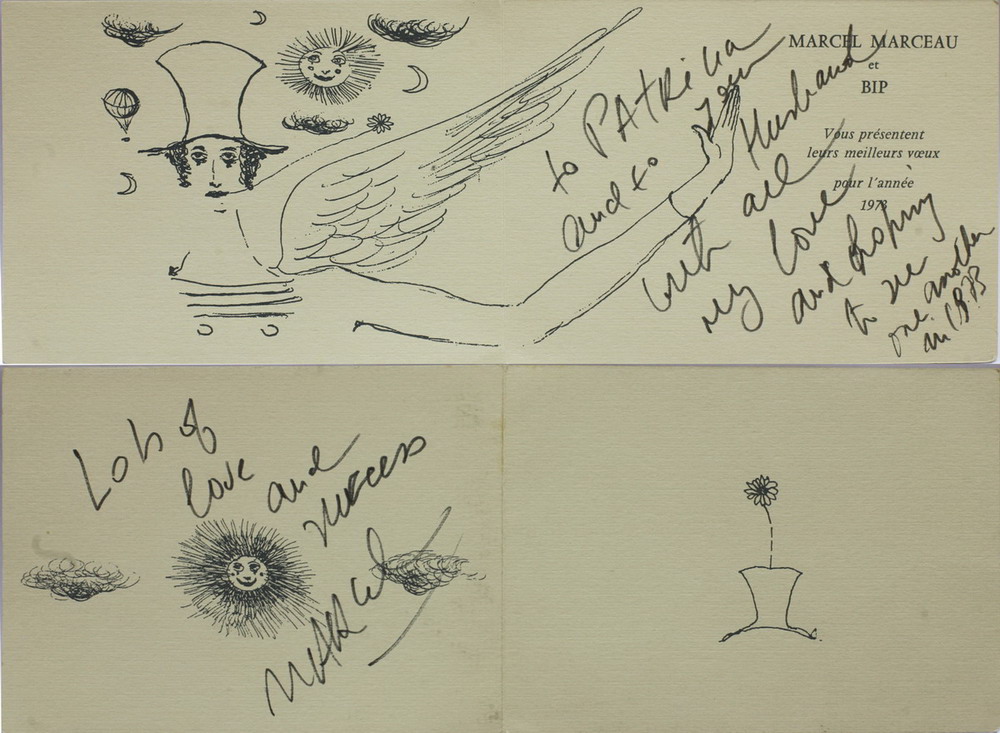 MARCEL MARCEAU
et
BIP
Vous présentent
leurs meilleurs vœux
pour l'année
1973
to PATRICIA
and to your Husband
with all
my love
and hoping
to see
one another
in 1973
Lots of
love and
success
MARCEL